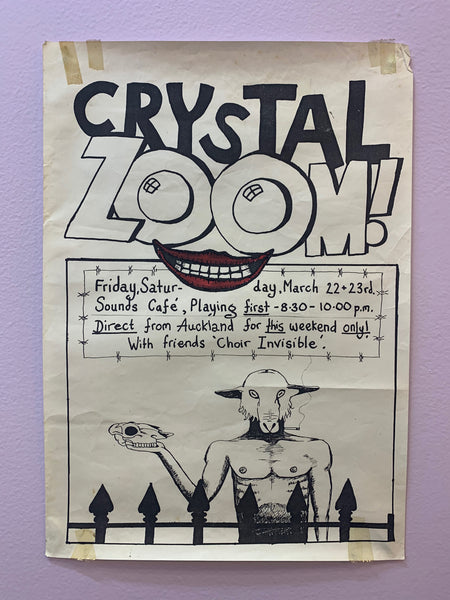 CRYSTAL
ZOOM!
Friday, Satur- day, March 22+23rd.
Sounds Café, Playing first - 8·30 - 10·00 p.m.
Direct from Auckland for this weekend only!
With friends 'Choir Invisible'.